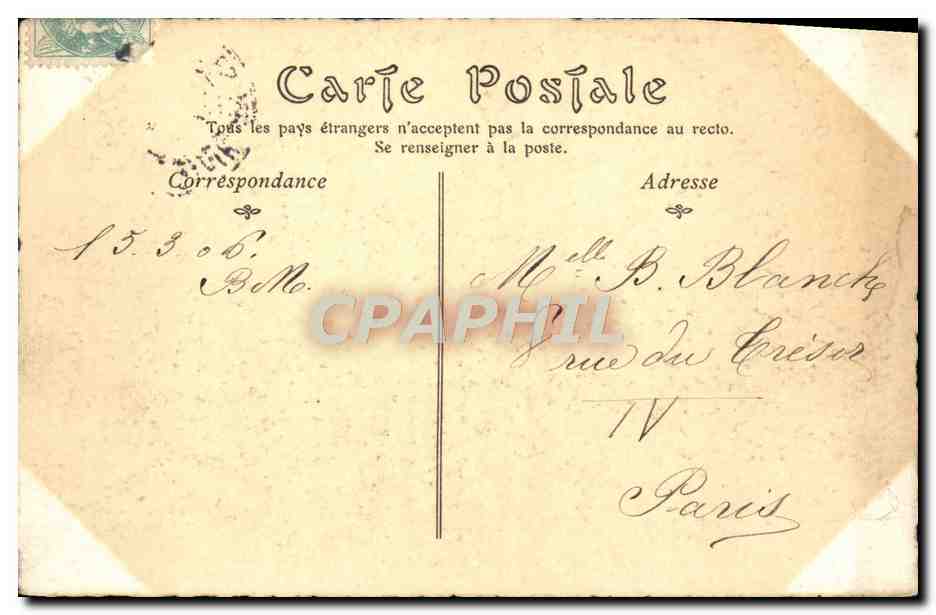 Carte Postale
Tous les pays étrangers n'acceptent pas la correspondance au recto.
Se renseigner à la poste.
Correspondance
15.3.06.
BM.
Adresse
Melle B. Blanche
rue du Trésor
IV
Paris
CPAPHIL